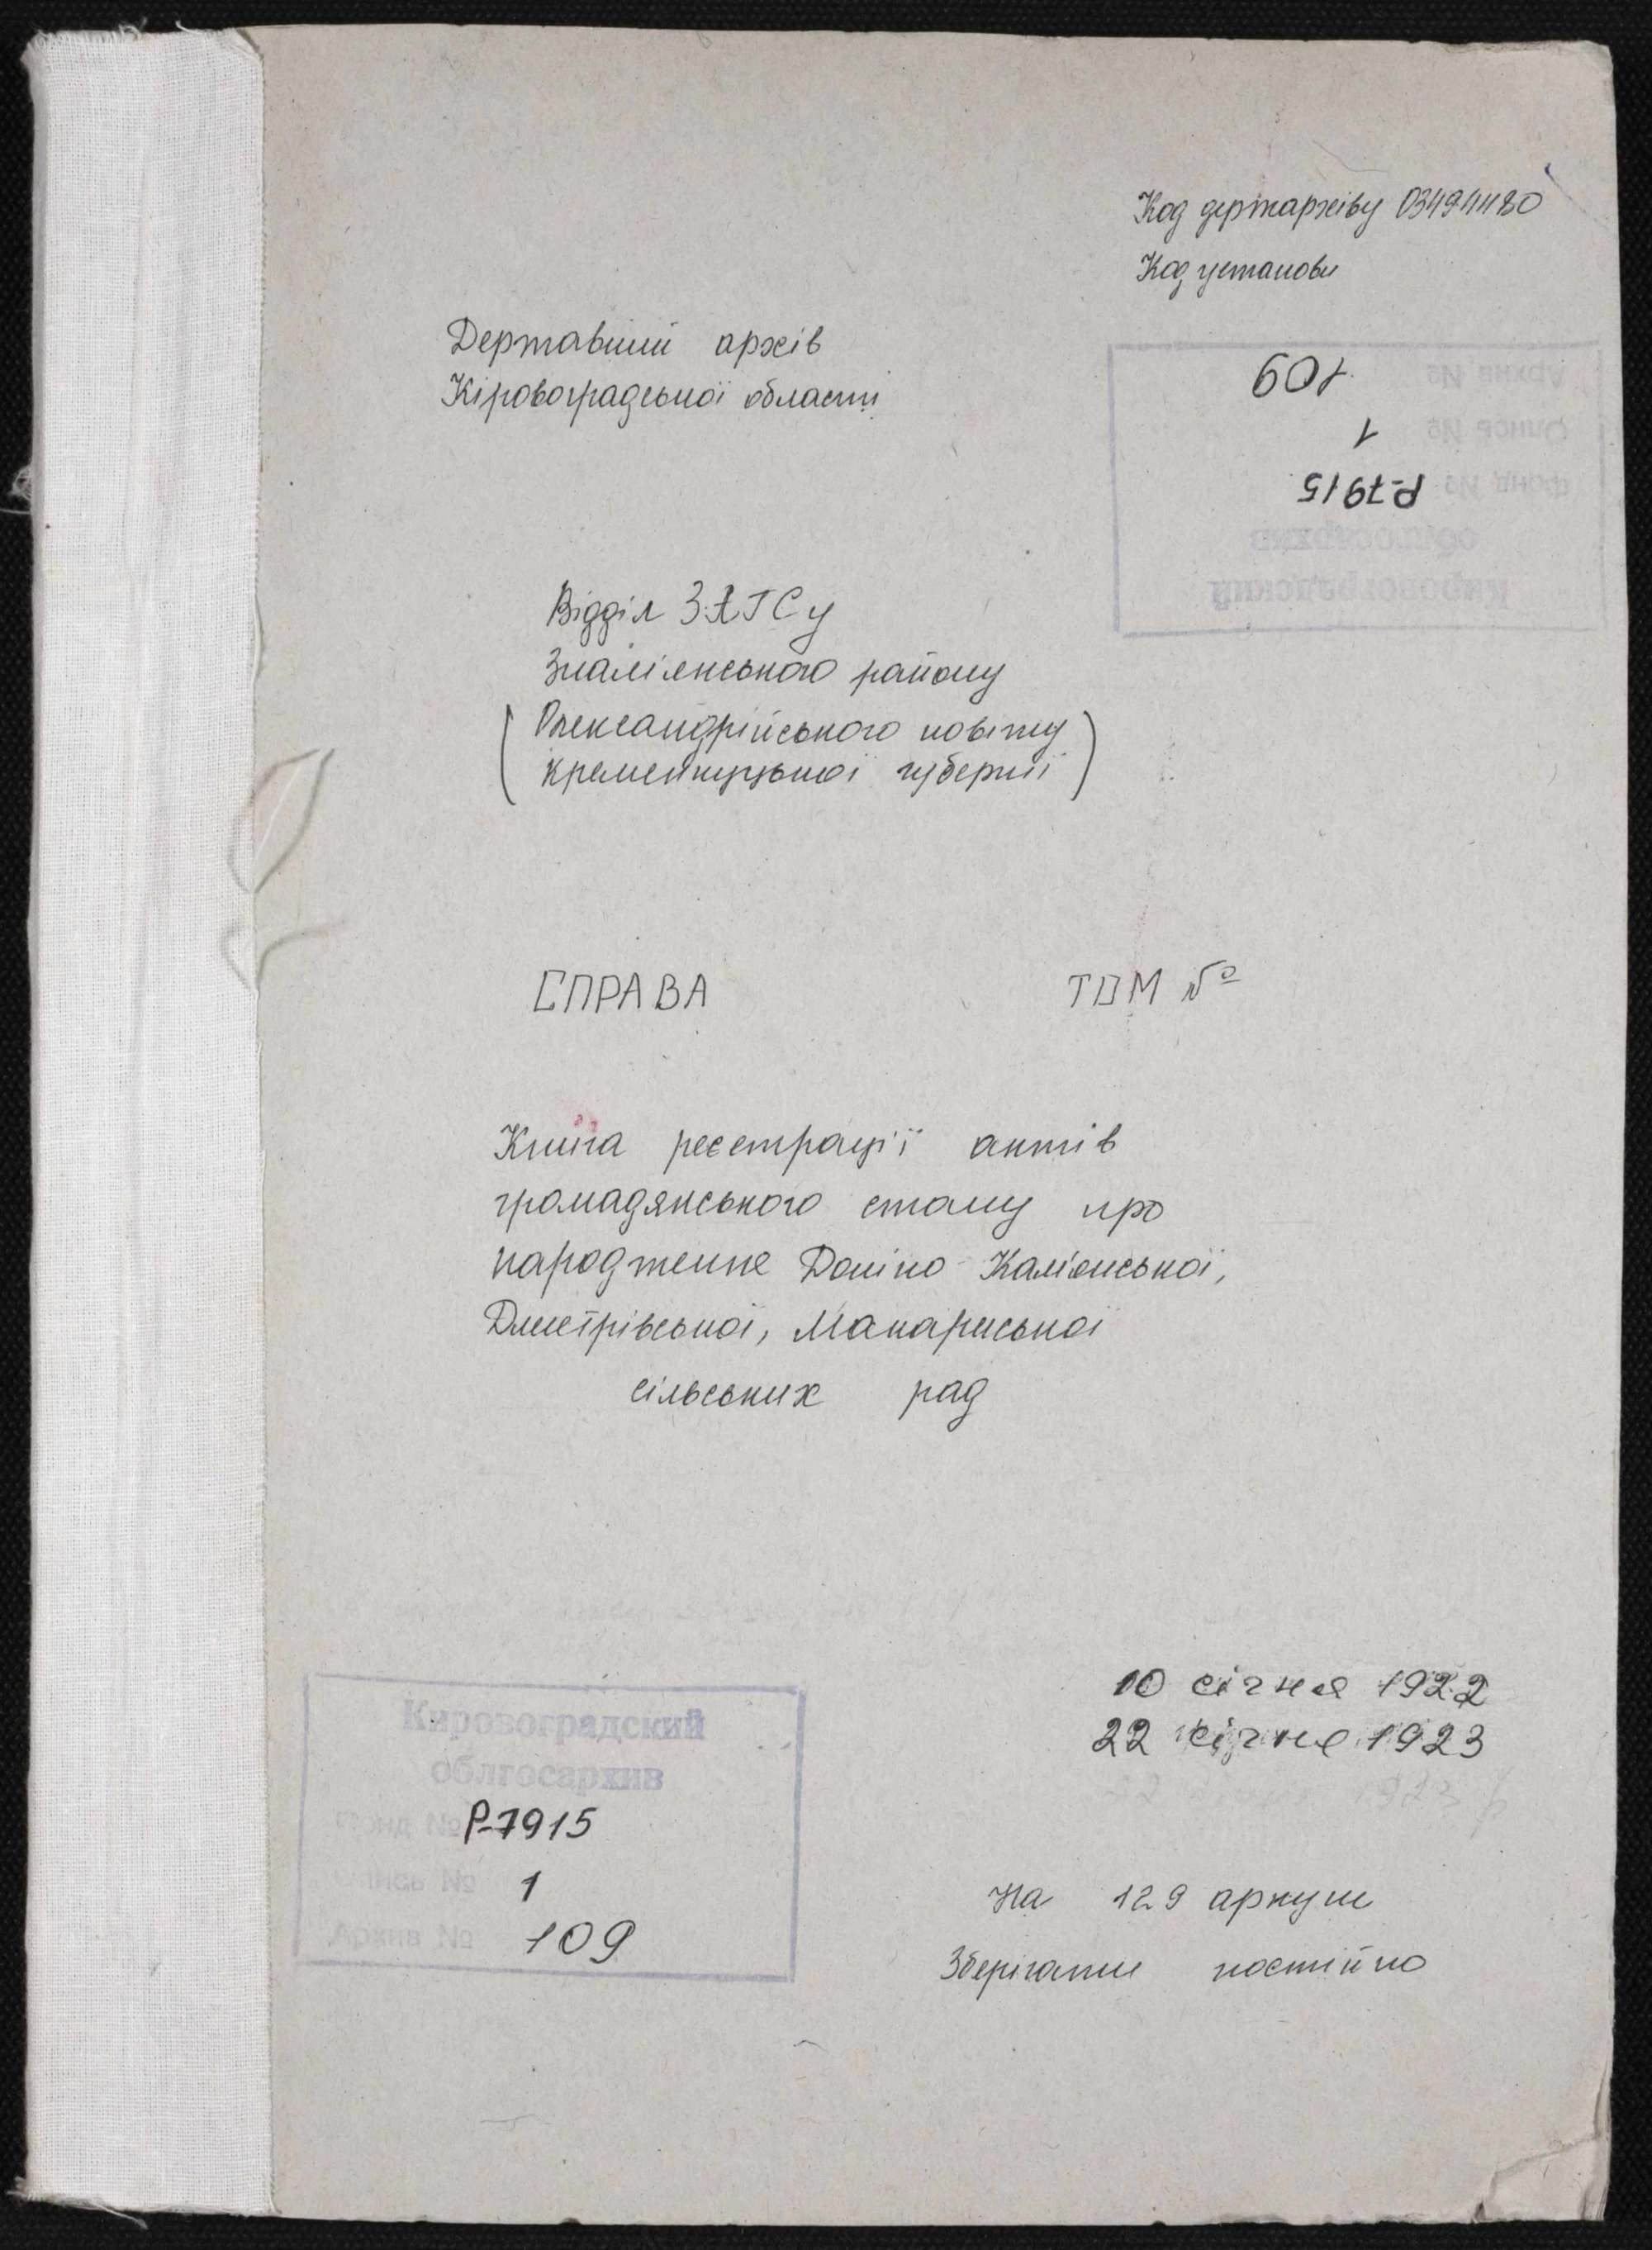 Код держархіву 03494480
Код установи
Державний архів
Кіровоградської області
109
1
Р-7915
облгосархив
Кировоградский
Відділ ЗАГСу
Знам'янського району
(Олександрійського повіту
Кременчуцької губернії)
СПРАВА ТОМ №
Книга реєстрації актів
громадянського стану про
народження Доліно-Кам'янської,
Дмитрівської, Макариської
сільських рад
10 січня 1922
22 січня 1923
Кировоградский
облгосархив
Фонд № Р-7915
Опись № 1
Архив № 109
На 129 аркуш
Зберігати постійно